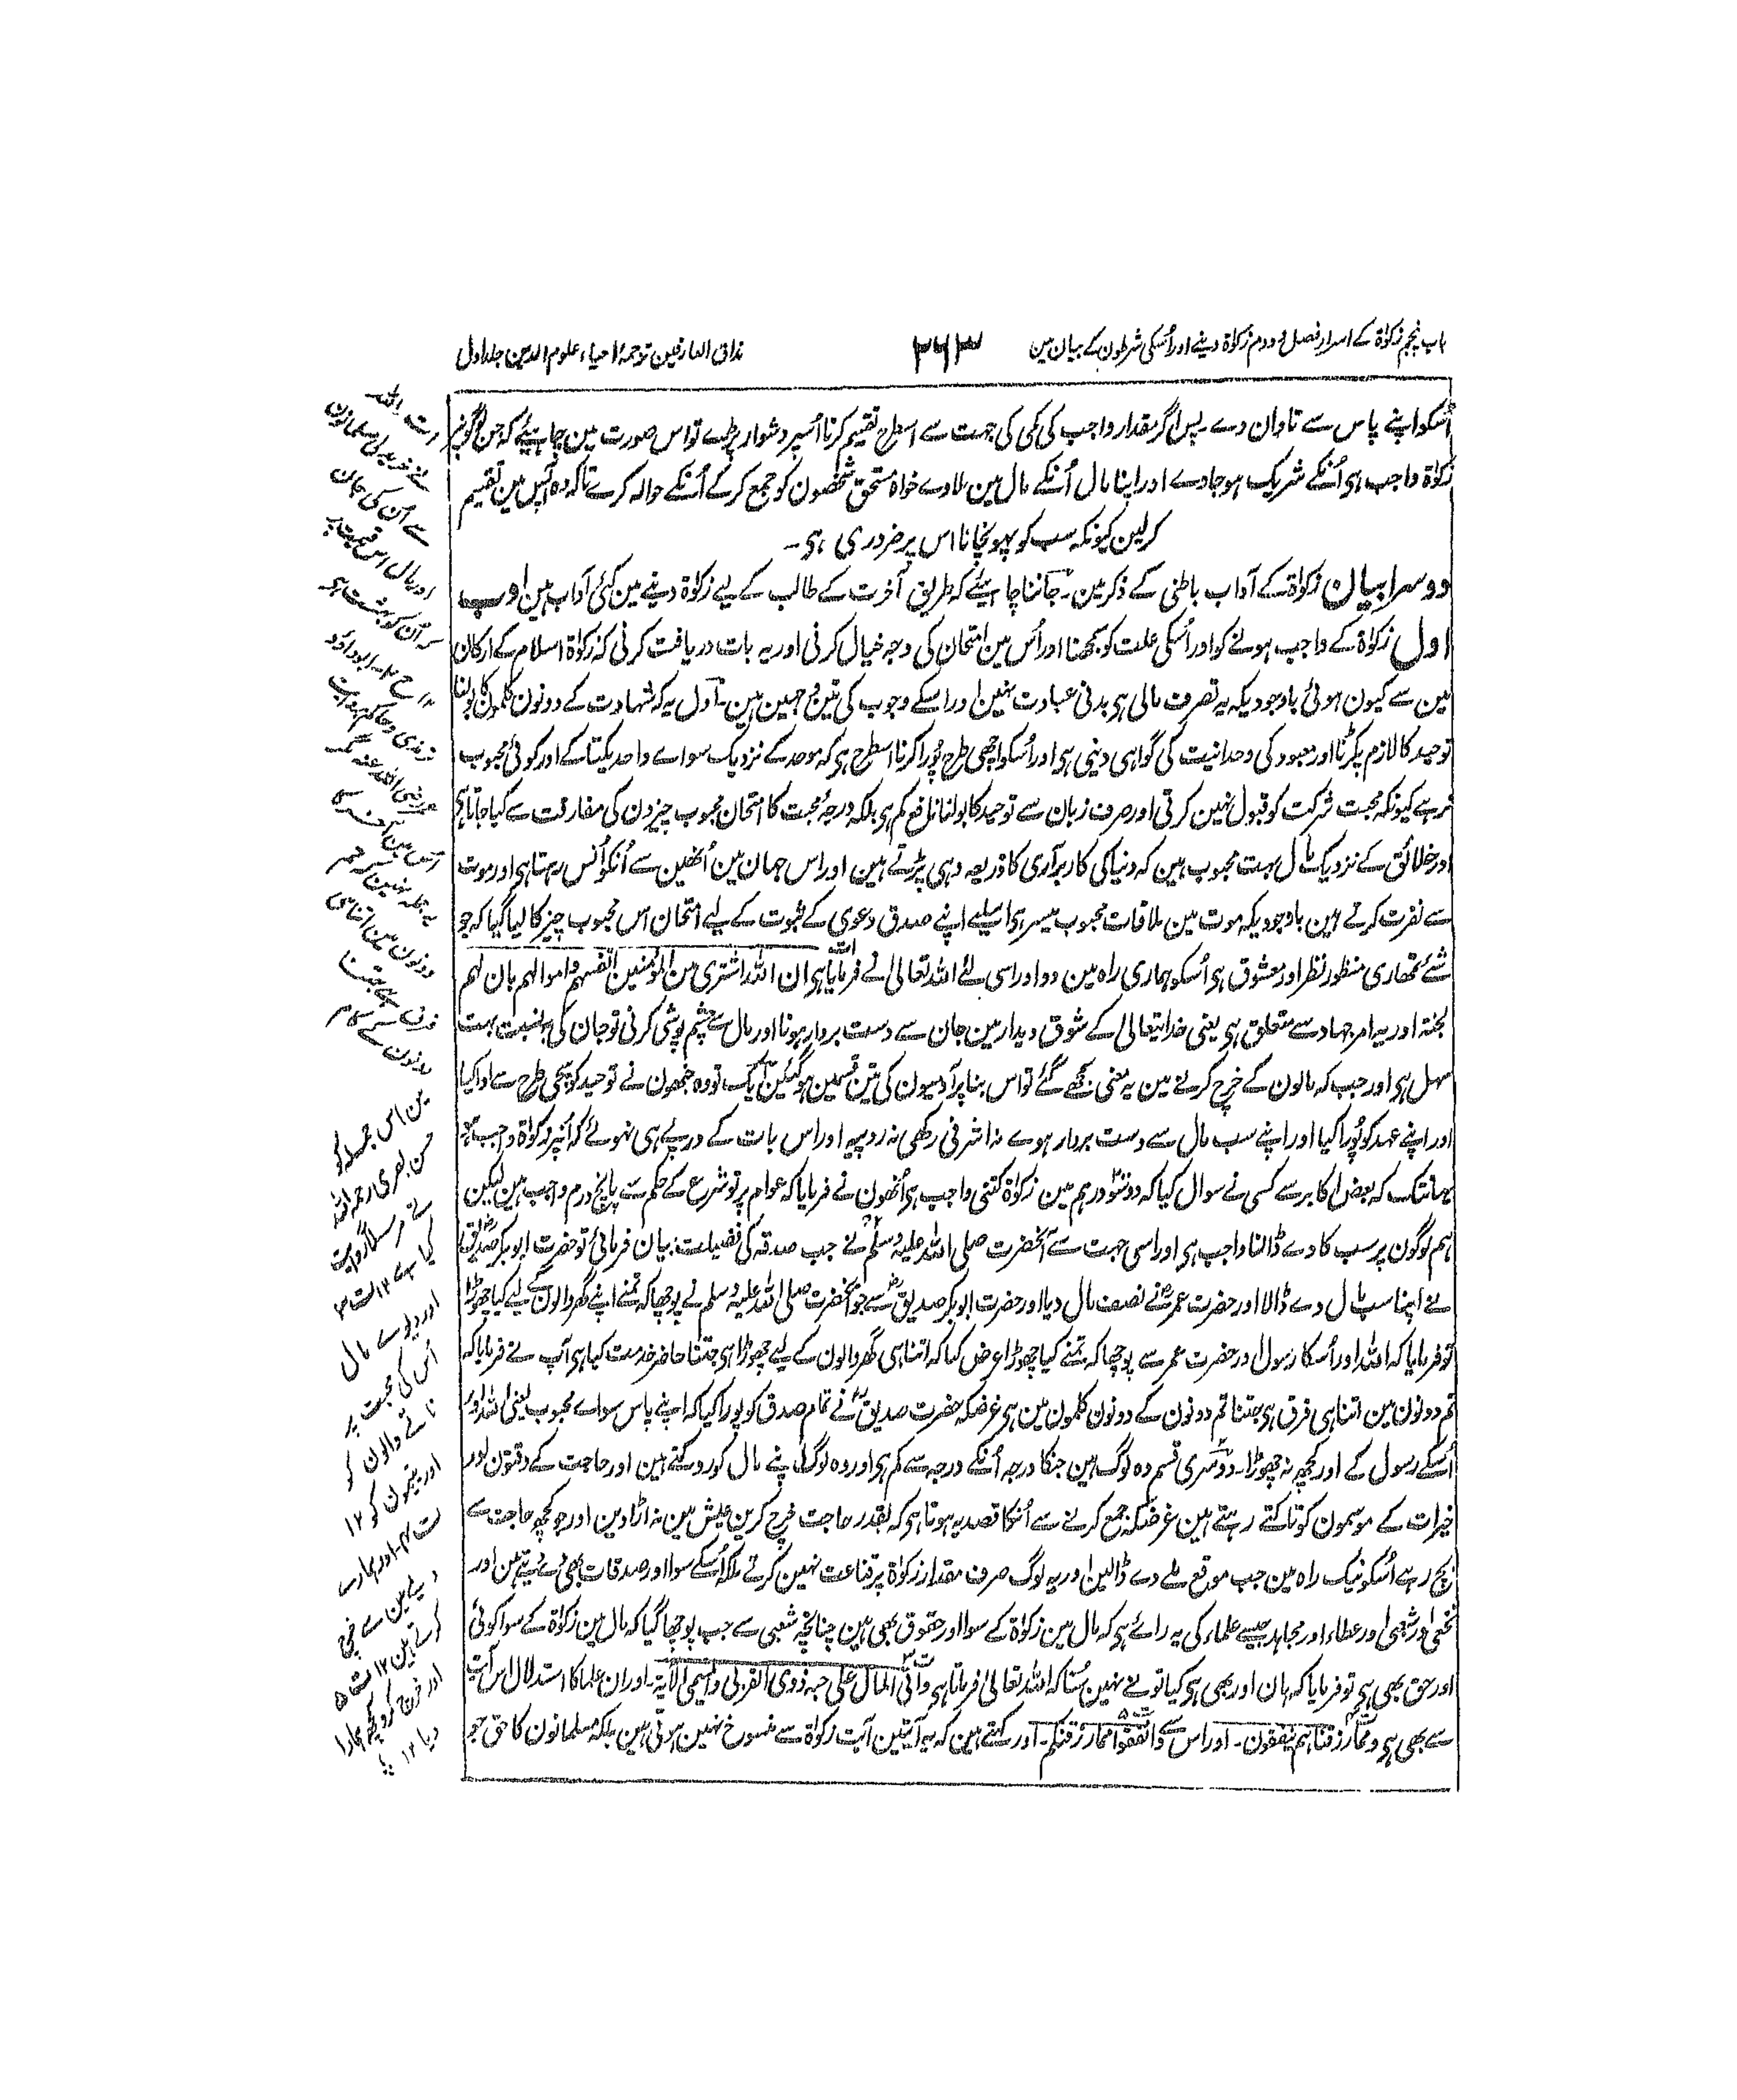 باب پنجم زکوٰۃ کے اسرار فصل دوم زکوٰۃ دینے اور اُسکی شرطون کے بیان مین
۲۶۳
مذاق العارفین ترجمۂ احیاء علوم الدین جلد اول
اُسکو اپنے پاس سے تاوان دے پس اگر مقدار واجب کی کمی کی جہت سے اسطرح تقسیم کرنا اُسپر دشوار پڑے تو اس صورت مین چاہیئے کہ جن لوگونپر
زکوٰۃ واجب ہی اُنکے شریک ہو جاوے اور اپنا مال اُنکے مال مین ملاوے خواہ مستحق شخصون کو جمع کر کے اُنکے حوالہ کرے تاکہ وہ آپس مین تقسیم
کر لین کیونکہ سب کو پہونچانا اس پر ضروری ہی۔
دوسرا بیان زکوٰۃ کے آداب باطنی کے ذکر مین۔ جاننا چاہیئے کہ طریق آخرت کے طالب کے لیے زکوٰۃ دینے مین کئی آداب ہین ادب
اول زکوٰۃ کے واجب ہونے کو اور اُسکی علت کو سمجھنا اور اُس مین امتحان کی وجہ خیال کرنی اور یہ بات دریافت کرنی کہ زکوٰۃ اسلام کے ارکان
مین سے کیون ہوئی باوجودیکہ یہ تصرف مالی ہی بدنی عبادت نہین اور اسکے وجوب کی تین وجہین ہین۔ اول یہ کہ شہادت کے دونون کلمون کا بولنا
توحید کا لازم پکڑنا اور معبود کی وحدانیت کی گواہی دینی ہی اور اُسکو اچھی طرح پُورا کرنا اسطرح ہی کہ موحد کے نزدیک سواے واحد یکتا کے اور کوئی محبوب
نرہے کیونکہ محبت شرکت کو قبول نہین کرتی اور صرف زبان سے توحید کا بولنا نافع کم ہی بلکہ درجۂ محبت کا امتحان محبوب چیزون کی مفارقت سے کیا جاتا ہی
اور خلائق کے نزدیک مال بہت محبوب ہین کہ دنیا کی کاربرآری کا ذریعہ وہی پڑتے ہین اور اس جہان مین اُنھین سے اُنکو اُنس رہتا ہی اور موت
سے نفرت کرتے ہین باوجودیکہ موت مین ملاقات محبوب میسر ہی اسلیے اپنے صدق دعوی کے ثبوت کے لیے امتحان اس محبوب چیز کا لیا گیا کہ جو
شئے تمھاری منظور نظر اور معشوق ہی اُسکو ہماری راہ مین دو اور اسی لئے اللہ تعالیٰ نے فرمایا ہی ان اللہ اشتری من المؤمنین انفسہم و اموالہم بان لہم
الجنۃ اور یہ امر جہاد سے متعلق ہی یعنی خدایتعالیٰ کے شوق دیدار مین جان سے دست بردار ہونا اور مال سے چشم پوشی کرنی تو جان کی بہ نسبت بہت
سہل ہی اور جب کہ مالون کے خرچ کرنے مین یہ معنی سمجھے گئے تو اس بنا پر آدمیون کی تین قسمین ہوگئین ایک تو وہ جنھون نے توحید کو سچی طرح سے ادا کیا
اور اپنے عہد کو پُورا کیا اور اپنے سب مال سے دست بردار ہوے نہ اشرفی رکھی نہ روپیہ اور اس بات کے درپے ہی نہوئے کہ اُنپر زکوٰۃ واجب ہو
یہانتک کہ بعض اکابر سے کسی نے سوال کیا کہ دو سَو درہم مین زکوٰۃ کتنی واجب ہی اُنھون نے فرمایا کہ عوام پر تو شرع کے حکم سے پانچ درم واجب ہین لیکن
ہم لوگون پر سب کا دے ڈالنا واجب ہی اور اسی جہت سے آنحضرت صلی اللہ علیہ وسلم نے جب صدقہ کی فضیلت بیان فرمائی تو حضرت ابو بکر صدیق
نے اپنا سب مال دے ڈالا اور حضرت عمرؓ نے نصف مال دیا اور حضرت ابو بکر صدیقؓ سے جو آنحضرت صلی اللہ علیہ وسلم نے پوچھا کہ تمنے اپنے گھر والون کے لیے کیا چھوڑا
تو فرمایا کہ اللہ اور اُسکا رسول اور حضرت عمر سے پوچھا کہ تمنے کیا چھوڑا عرض کیا کہ اتنا ہی گھر والون کے لیے چھوڑا ہی جتنا حاضر خدمت کیا ہی آپ نے فرمایا کہ
تم دونون مین اتنا ہی فرق ہی جتنا تم دونون کے دونون کلمون مین ہی غرضکہ حضرت صدیقؓ نے تمام صدق کو پورا کیا کہ اپنے پاس سواے محبوب یعنی اللہ اور
اُسکے رسول کے اور کچھ نہ چھوڑا۔ دوسری قسم وہ لوگ ہین جنکا درجہ اُنکے درجہ سے کم ہی اور وہ لوگ اپنے مال کو روکتے ہین اور حاجت کے وقتون اور
خیرات کے موسمون کو تاکتے رہتے ہین غرضکہ جمع کرنے سے اُنکا قصد یہ ہوتا ہی کہ بقدر حاجت خرچ کرین عیش مین نہ اڑادین اور جو کچھ حاجت سے
بچ رہے اُسکو نیک راہ مین جب موقع ملے دے ڈالین اور یہ لوگ صرف مقدار زکوٰۃ پر قناعت نہین کرتے بلکہ اُسکے سوا اور صدقات بھی دیتے ہین اور
نخعی اور شعبی اور عطاء اور مجاہد جیسے علماء کی یہ رائے ہی کہ مال مین زکوٰۃ کے سوا اور حقوق بھی ہین چنانچہ شعبی سے جب پوچھا گیا کہ مال مین زکوٰۃ کے سوا کوئی
اور حق بھی ہی تو فرمایا کہ ہان اور بھی ہی کیا تو نے نہین سُنا کہ اللہ تعالیٰ فرماتا ہی وآتی المال علی حبہ ذوی القربی والیتمی الآیۃ۔ اور ان علما کا استدلال اس آیت
سے بھی ہی ومما رزقناہم ینفقون۔ اور اس سے وانفقوا مما رزقنکم۔ اور کہتے ہین کہ یہ آیتین آیت زکوٰۃ سے منسوخ نہین ہوئی ہین بلکہ مسلمانون کا حق جو
اللہ
نے خرید لی مسلمانون
سے اُن کی جان
اور مال اس قیمت پر
کہ اُن کو بہشت ہی
ابوداؤد
ترمذی و حاکم بروایت
عمر رضی اللہ عنہ مگر
اس مین
یہ جملہ نہین کہ تم
دونون مین اتنا ہی
فرق ہے جتنا
دونون کے کلام
مین اس جملہ کو
حسن بصری رحمہ اللہ
نے مرسلاً روایت
کیا ہے ۱۲ ت ۳
اور دیوے مال
اُس کی محبت پر
ناتے والون کو
اور یتیمون کو ۱۲
ت ۴ اور ہمارے
دیئے مین سے خرچ
کرتے ہین ۱۲ ت ۵
اور خرچ کرو کچھ ہمارا
دیا ۱۲